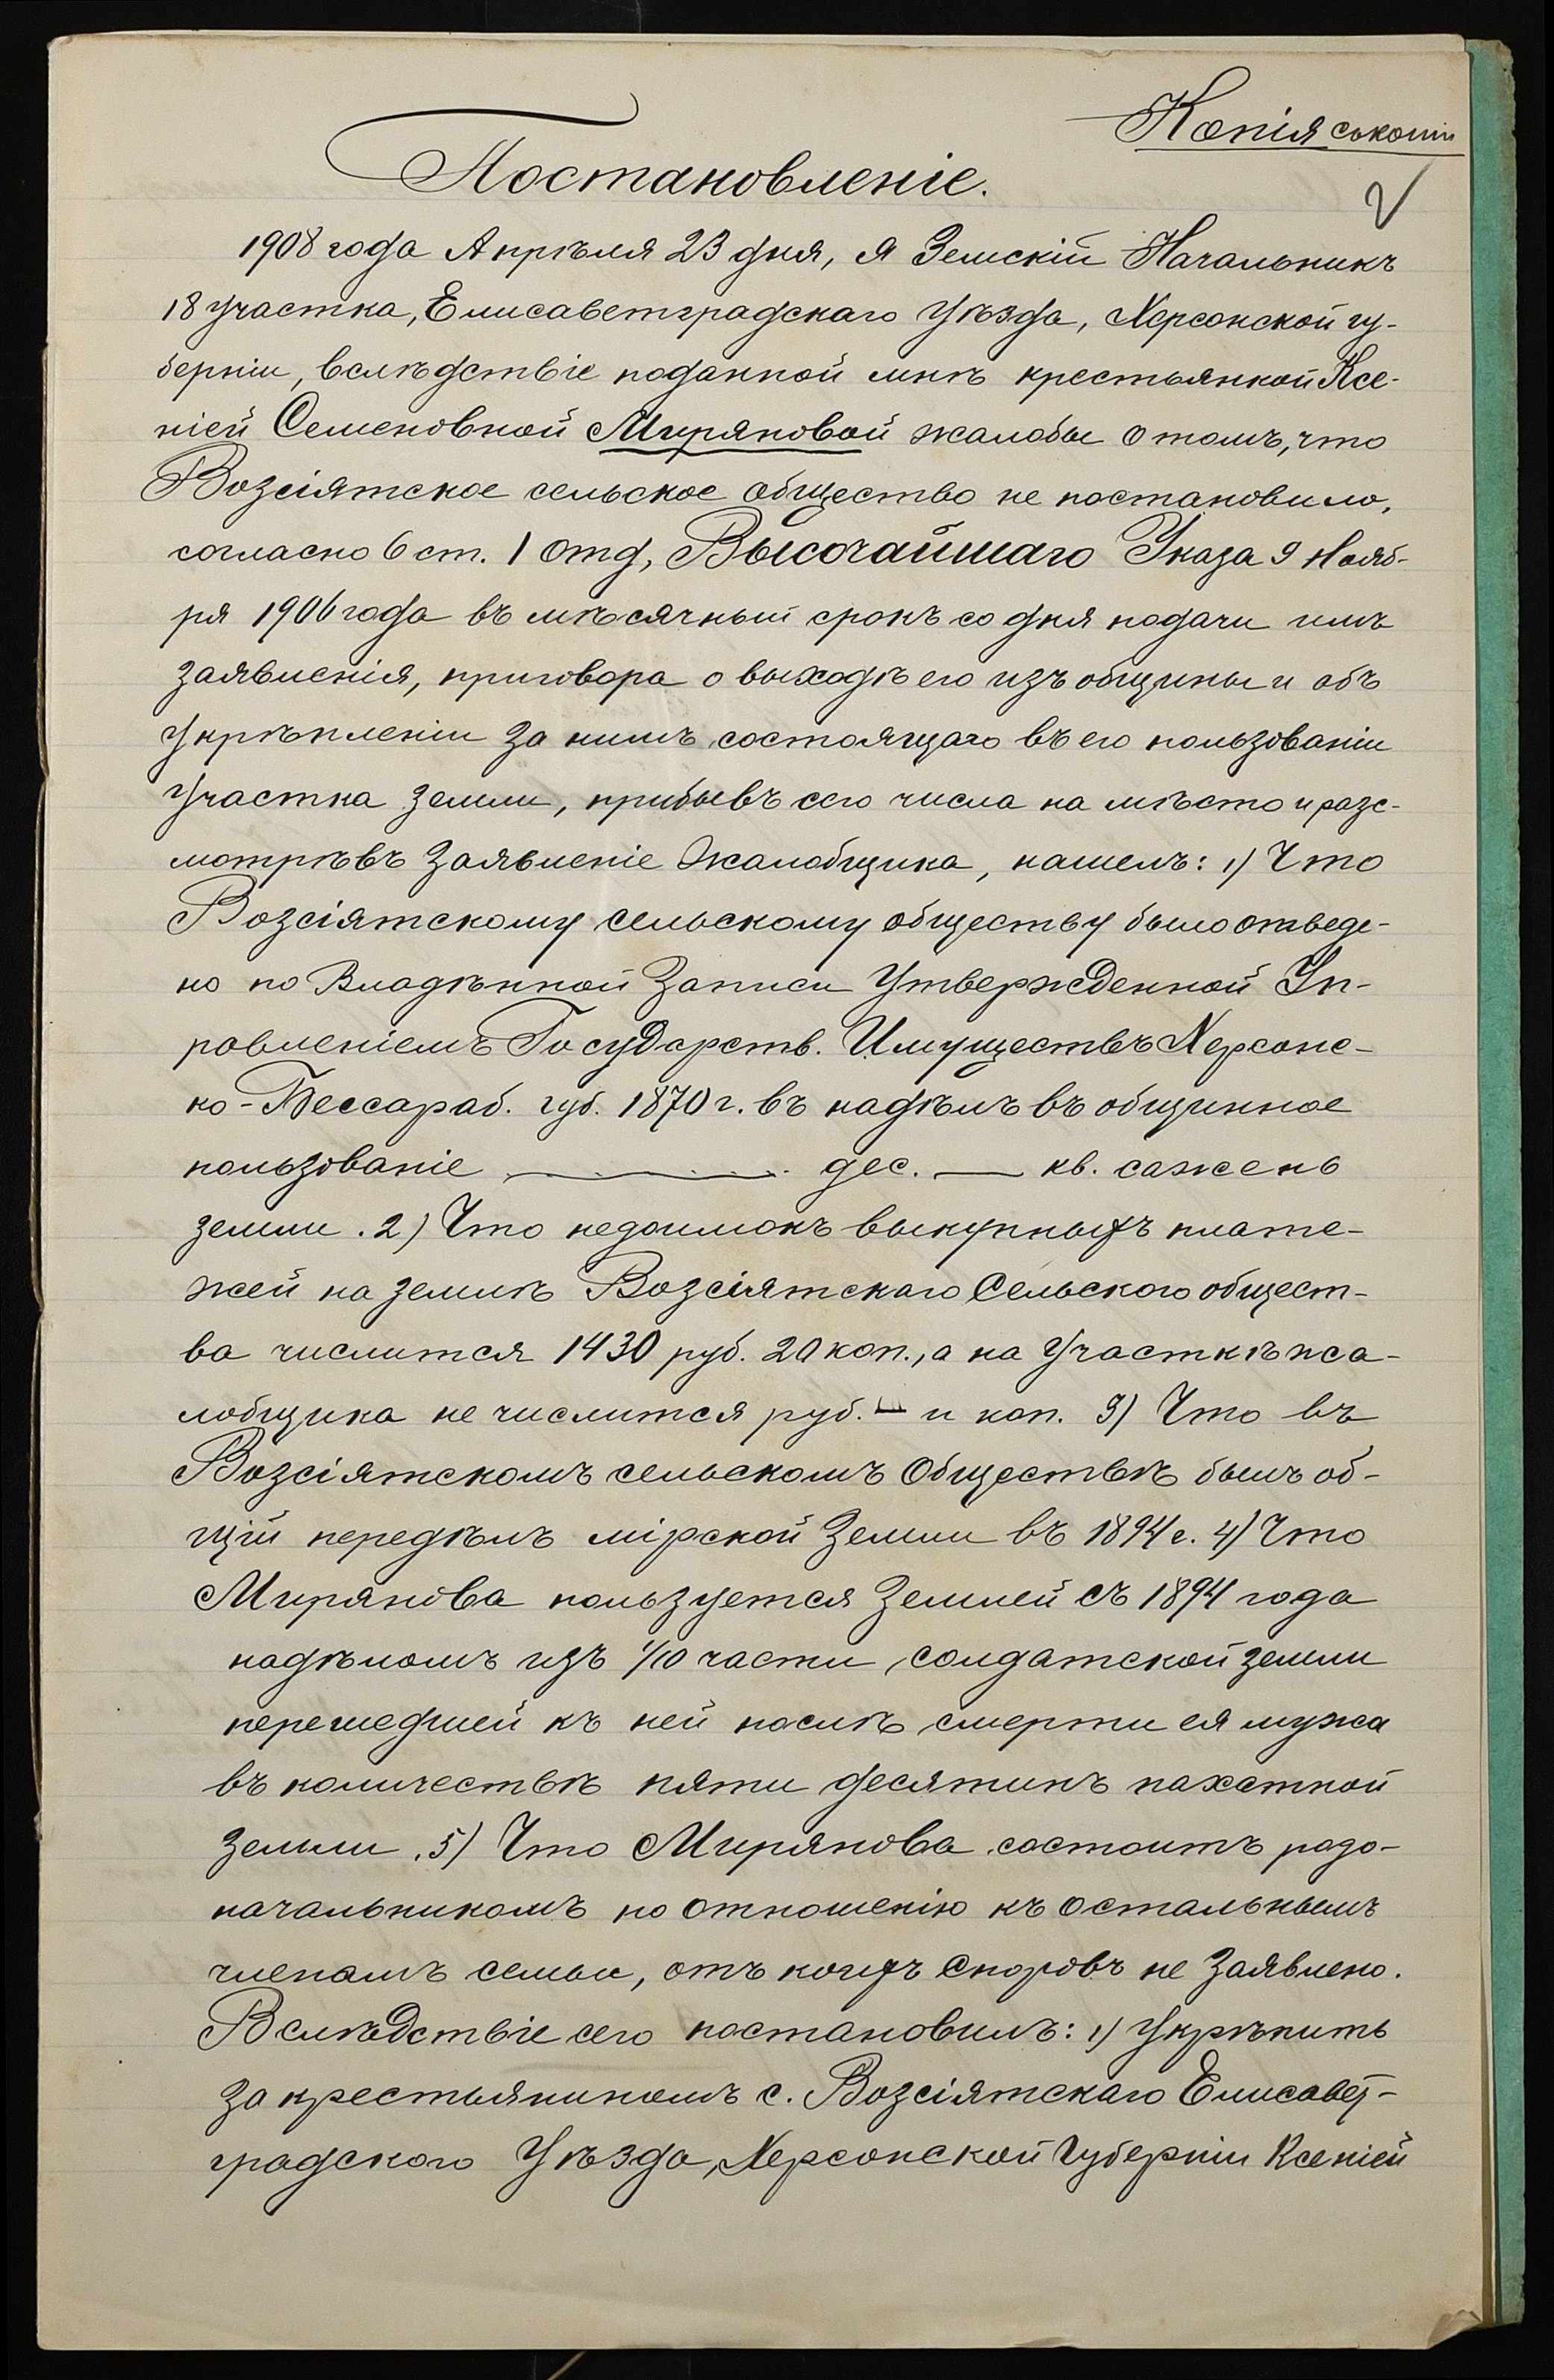 Копія съкопіи
Постановленіе.
1908 года Апрѣля 23 дня, я Земскій Начальникъ
18 участка, Елисаветградскаго Уѣзда, Херсонской гу-
берніи, вслѣдствіе поданной мнѣ крестьянкой Ксе-
ніей Семеновной Миряновой жалобы о томъ, что
Возсіятское сельское общество не постановило,
согласно 6 ст. 1 отд, Высочайшаго Указа 9 Нояб-
ря 1906 года въ мѣсячный срокъ со дня подачи имъ
заявленія, приговора о выходѣ его изъ общины и объ
укрѣпленіи за нимъ состоящаго въ его пользованіи
участка земли, прибывъ сего числа на мѣсто и разс-
мотрѣвъ заявленіе жалобщика, нашелъ: 1) Что
Возсіятскому сельскому обществу было отведе-
но по Владѣнной Записи утвержденной Уп-
равленіемъ Государств. Имуществъ Херсонс-
ко-Бессараб. губ. 1870 г. въ надѣлъ въ общинное
пользованіе — дес. — кв. сажень
земли. 2) Что недоимокъ выкупныхъ плате-
жей на землѣ Возсіятскаго Сельского общест-
ва числится 1430 руб. 20 коп., а на Участкѣ жа-
лобщика не числится руб. — и коп. 3) Что въ
Возсіятскомъ сельскомъ Обществѣ былъ об-
щій передѣлъ мірской Земли въ 1894 г. 4) Что
Мирянова пользуется Землей съ 1894 года
надѣломъ изъ 1/10 части солдатской земли
перешедшей къ ней послѣ смерти ея мужа
въ количествѣ пяти десятинъ пахатной
земли. 5) Что Мирянова состоитъ родо-
начальникомъ по отношенію къ остальнымъ
членамъ семьи, отъ коихъ споровъ не заявлено.
Вслѣдствіе сего постановилъ: 1) Укрѣпить
за крестьяниномъ с. Возсіятскаго Елисавет-
градского Уѣзда, Херсонской Губерніи Ксеніей